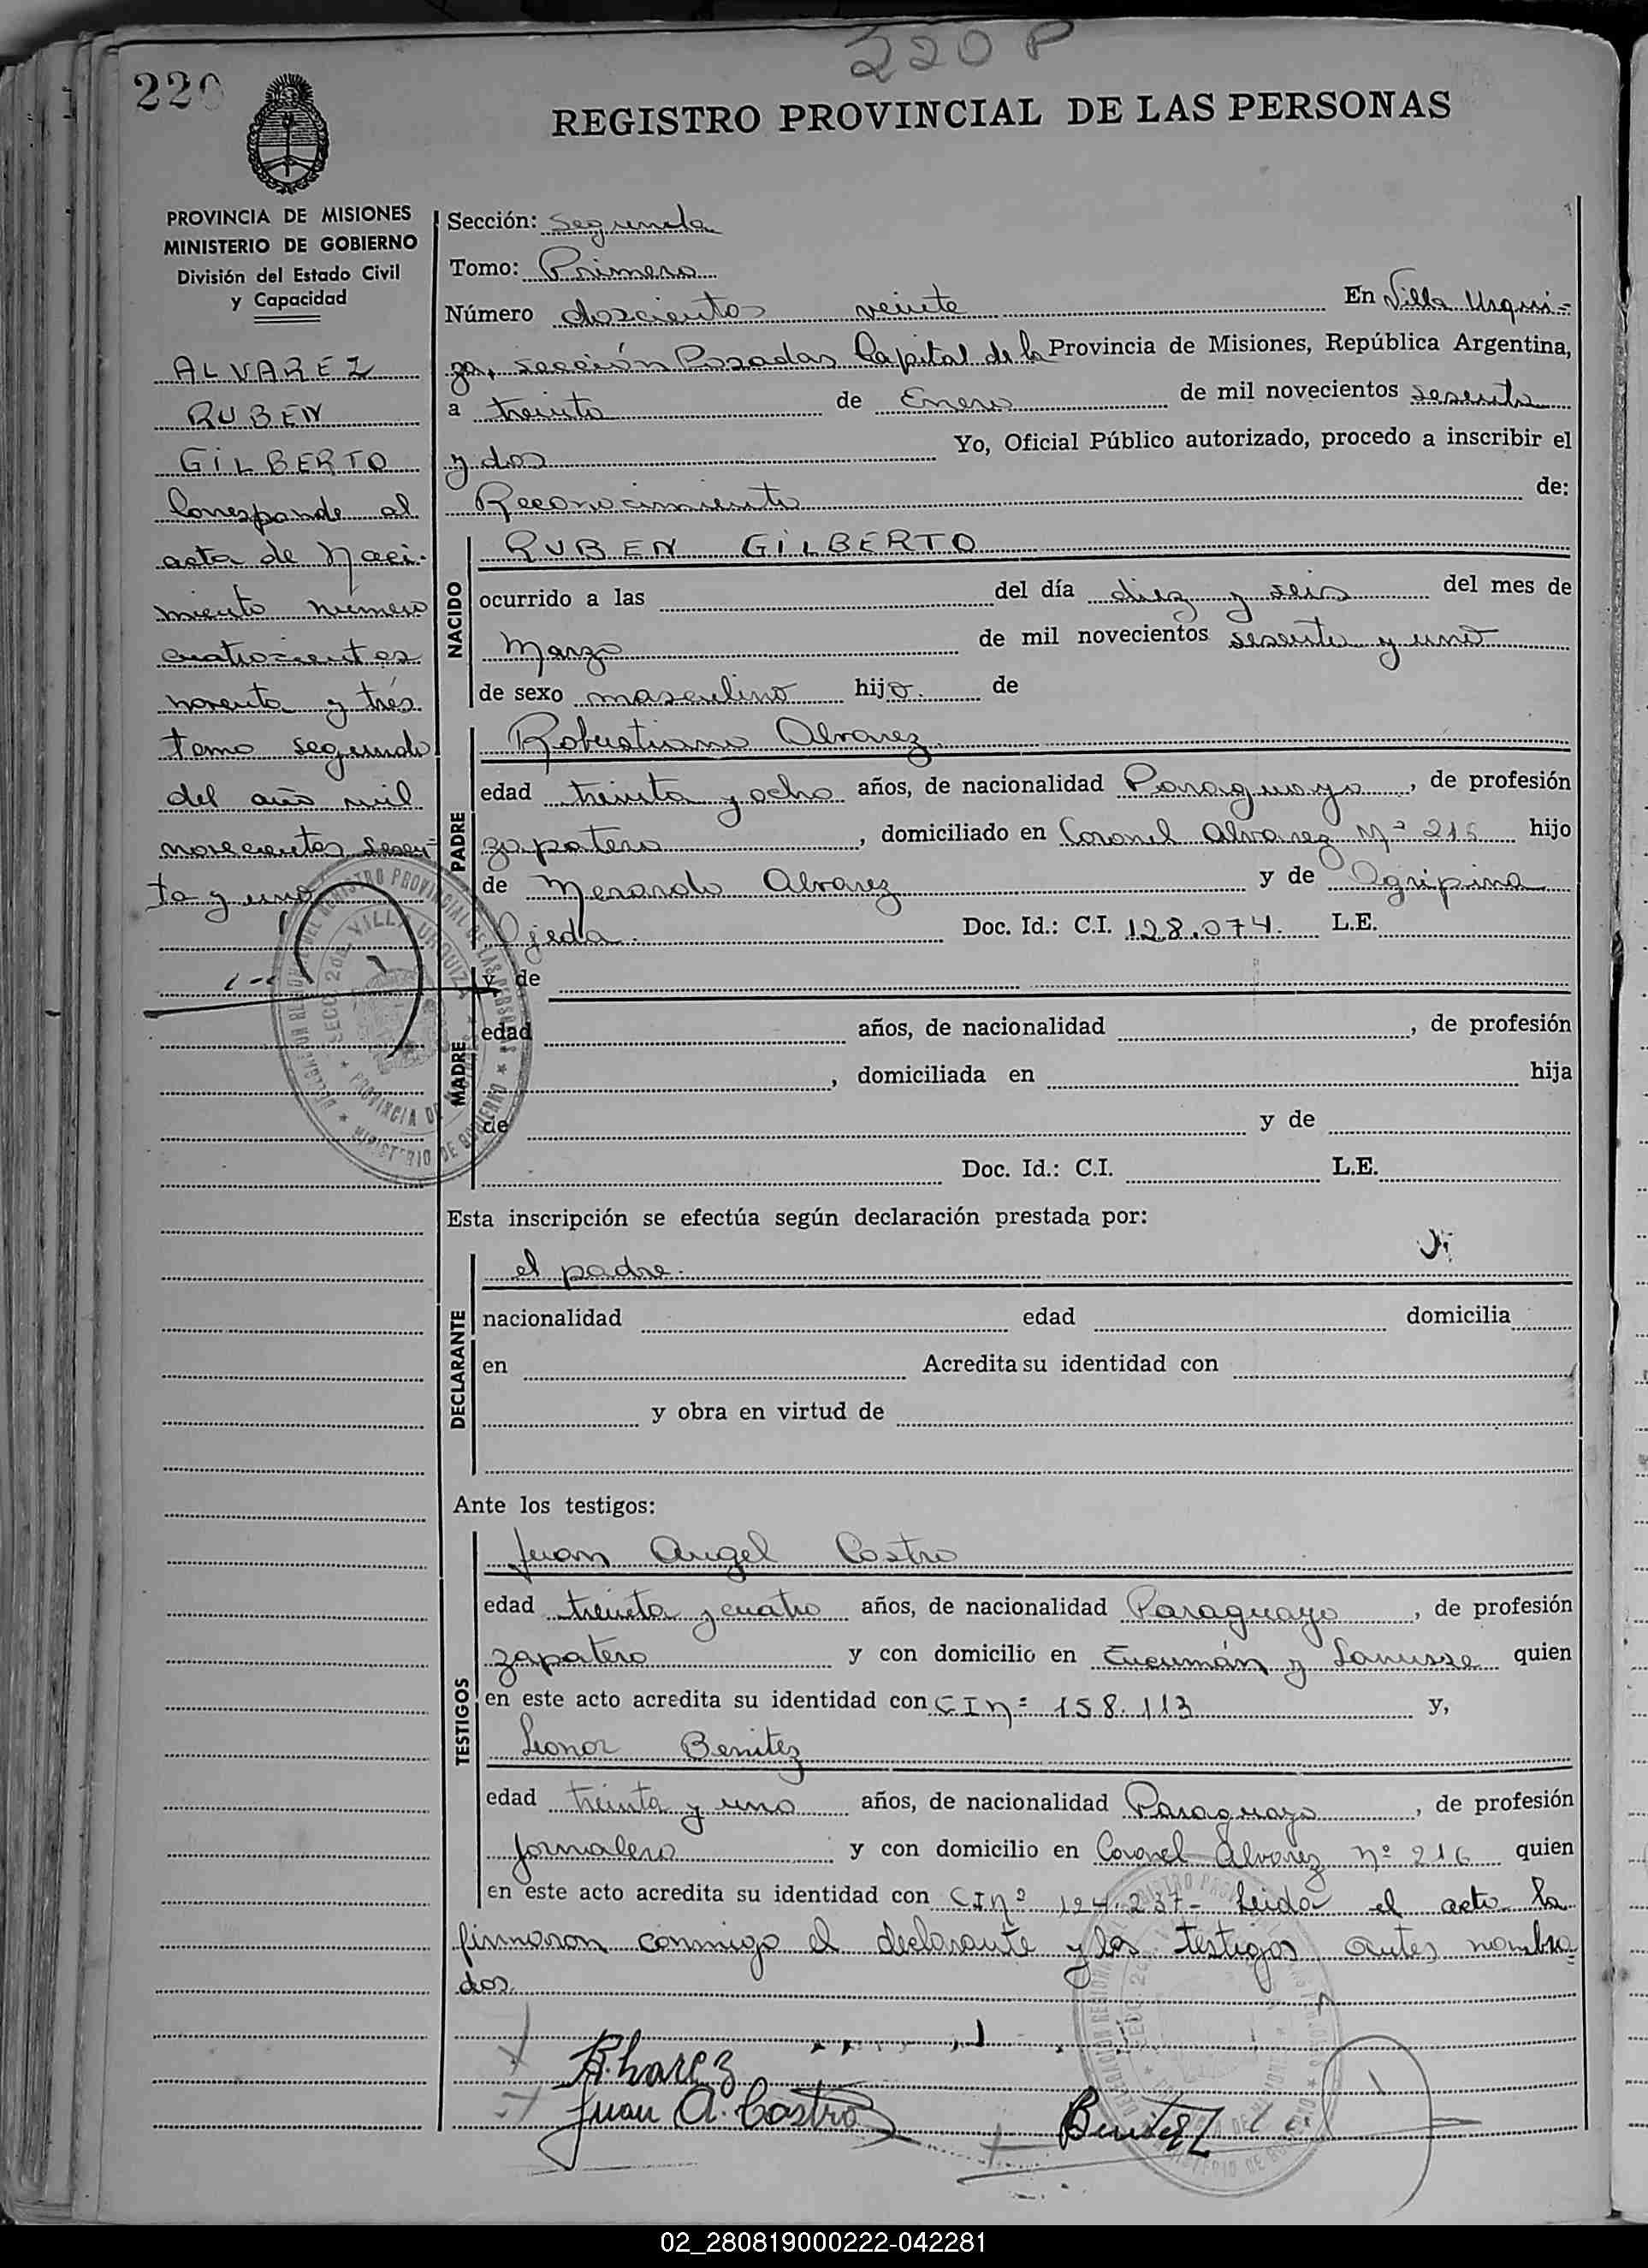 220 P
220
REGISTRO PROVINCIAL DE LAS PERSONAS
PROVINCIA DE MISIONES
MINISTERIO DE GOBIERNO
División del Estado Civil
y Capacidad
ALVAREZ
RUBEN
GILBERTO
Corresponde al
acta de Naci-
miento número
cuatrocientos
noventa y trés
tomo segundo
del año mil
novecientos sesen-
ta y uno
Sección: Segunda
Tomo: Primero
Número doscientos veinte En Villa Urqui=
za, sección Posadas Capital de la Provincia de Misiones, República Argentina,
a treinta de Enero de mil novecientos sesenta
y dos Yo, Oficial Público autorizado, procedo a inscribir el
Reconocimiento de:
NACIDO
RUBEN GILBERTO
ocurrido a las del día diez y seis del mes de
Marzo de mil novecientos sesenta y uno
de sexo masculino hijo de
PADRE
Robustiano Alvarez
edad treinta y ocho años, de nacionalidad Paraguaya, de profesión
zapatero, domiciliado en Coronel Alvarez Nº 215 hijo
de Merardo Alvarez y de Agripina
Ojeda. Doc. Id.: C.I. 128.074. L.E.
MADRE
y de
edad años, de nacionalidad , de profesión
, domiciliada en hija
de y de
Doc. Id.: C.I. L.E.
Esta inscripción se efectúa según declaración prestada por:
DECLARANTE
el padre.
nacionalidad edad domicilia
en Acredita su identidad con
y obra en virtud de
Ante los testigos:
TESTIGOS
Juan Angel Castro
edad treinta y cuatro años, de nacionalidad Paraguayo, de profesión
zapatero y con domicilio en Tucumán y Lanusse quien
en este acto acredita su identidad con C I nº 158.113 y,
Leonor Benitez
edad treinta y uno años, de nacionalidad Paraguayo, de profesión
jornalero y con domicilio en Coronel Alvarez nº 216 quien
en este acto acredita su identidad con C I nº 124.237- Leida el acta la
firmaron conmigo el declarante y los testigos antes nombra=
dos.
Juan A. Castro
Benitez
02_280819000222-042281